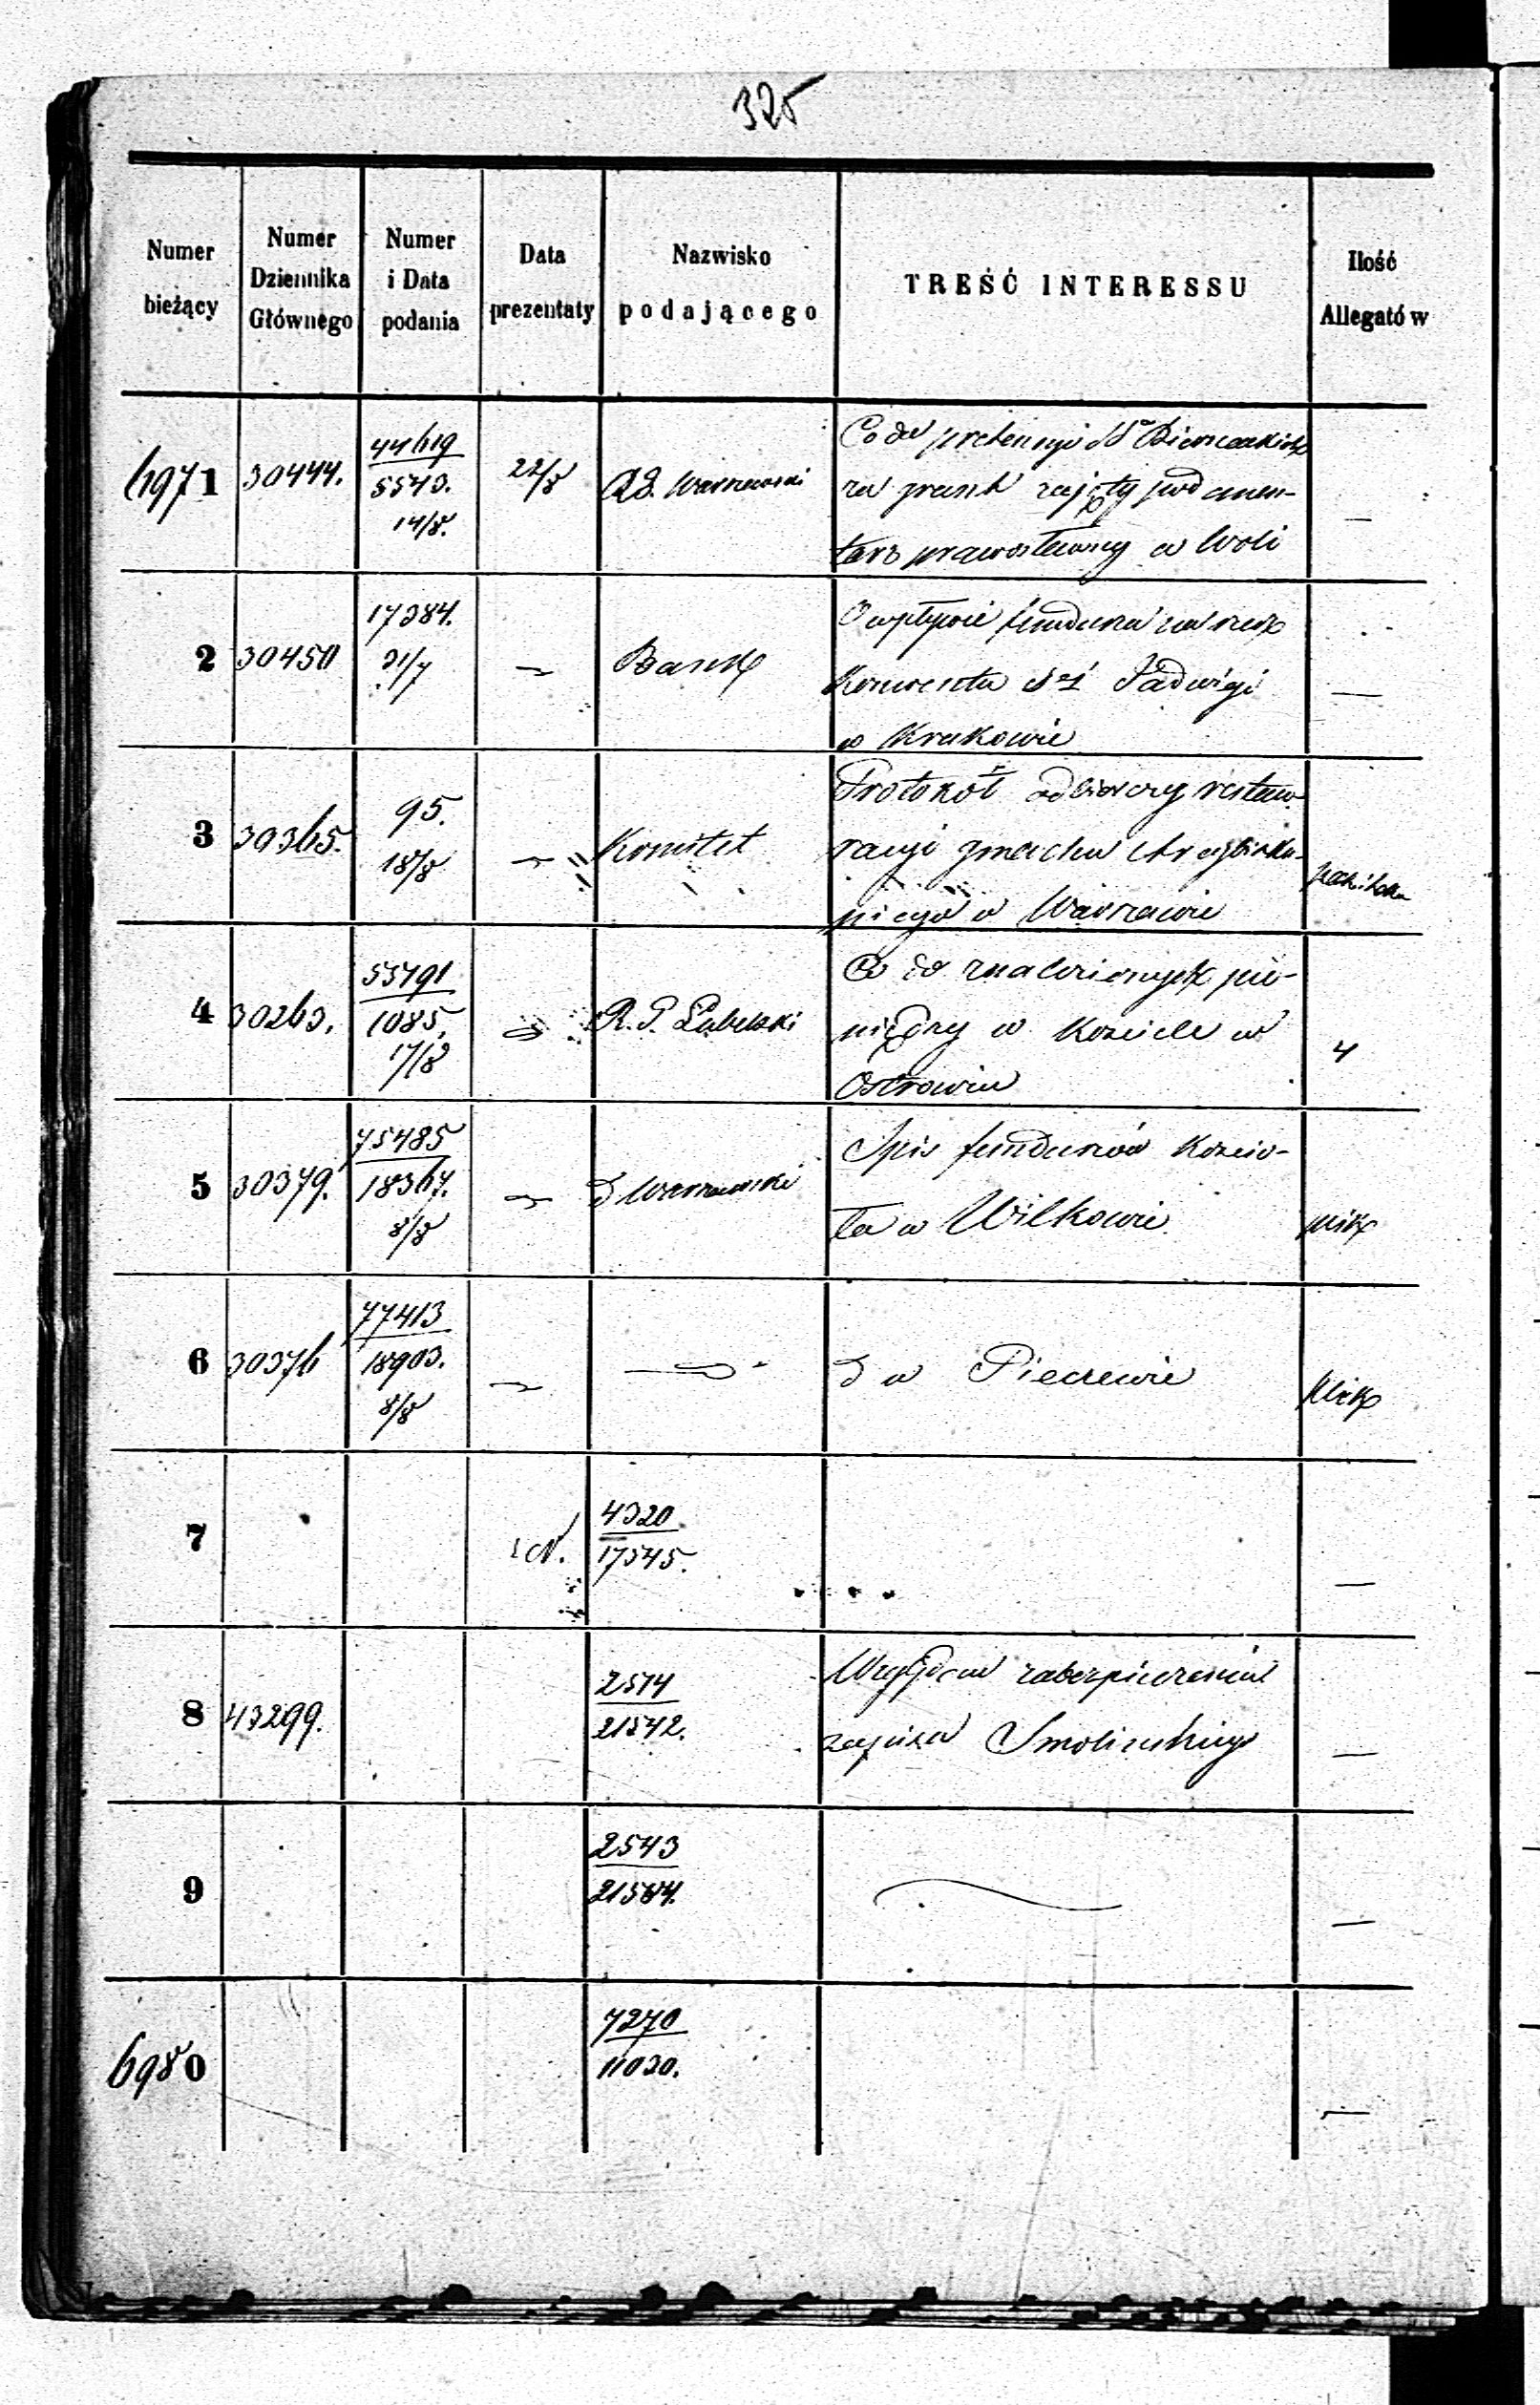 325
Numer bieżący
Numer Dziennika Głównego
Numer i Data podania
Data prezentaty
Nazwisko podającego
TREŚĆ INTERESSU
Ilość Allegatów
6971 30444. 44619 / 5543. 14/8. 22/8
Co do pretensyi
za grunt zajęty pod cmen-
tarz prawosławny w Woli
—
2 30450 17384. 31/7 — Bank
O wpływie funduszu na rzecz
Konwentu Jadwigi
w Krakowie
—
3 30365. 95. 18/8 — Komitet
Protokół odbiorczy restau-
racyi gmachu Arcybisku-
piego w Warszawie
4 30263. 53791 / 1085. 17/8 — R. G. Lubelski
Co do znalezionych pie-
niędzy w Kościele w
Ostrowiu
4
5 30379. 75485 / 18367. 8/8 — Warszawski
Spis funduszów Kościo-
ła w Wilkowie
plik
6 30376 77413 / 18903. 8/8 — —
d w Pieczewie
plik
7 N. 4320 / 17545. —
8 43299. 2514 / 21542.
Względem zabezpieczenia
zapisu Smolińskiego
—
9 2543 / 21584. —
6980 7270 / 11030. —